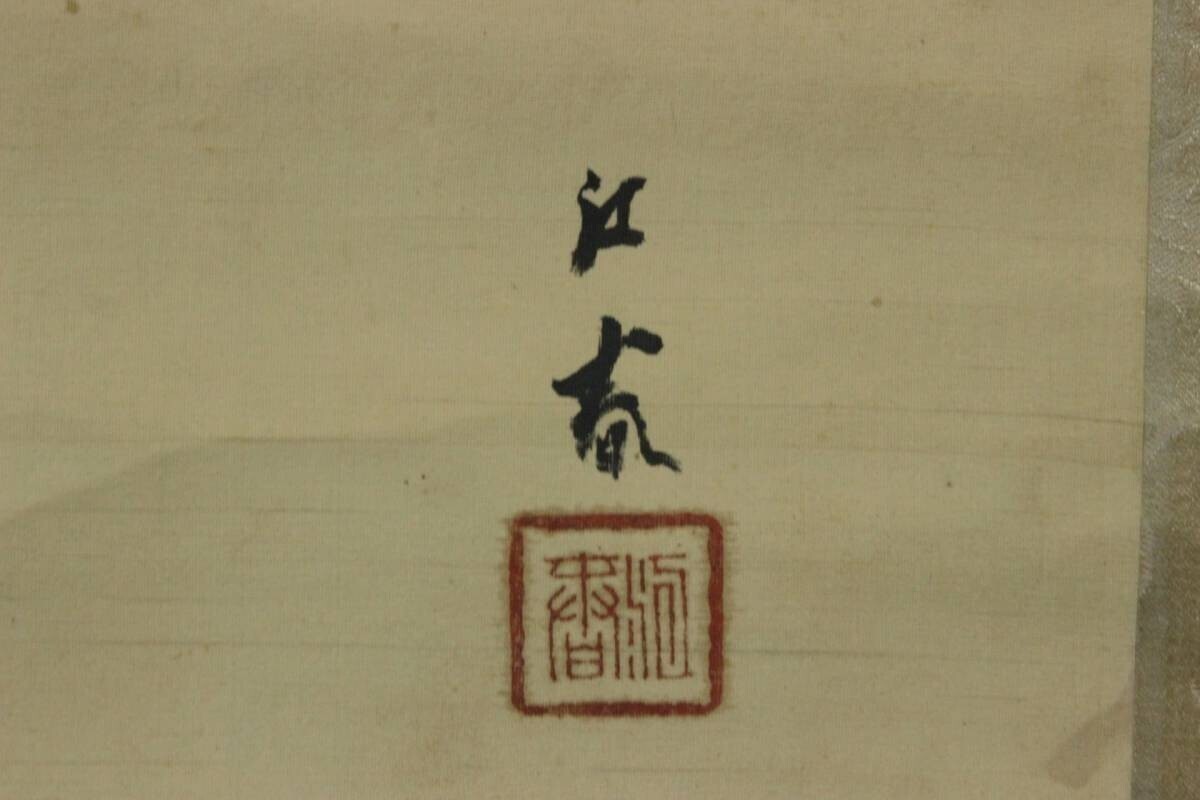 江
春
江春